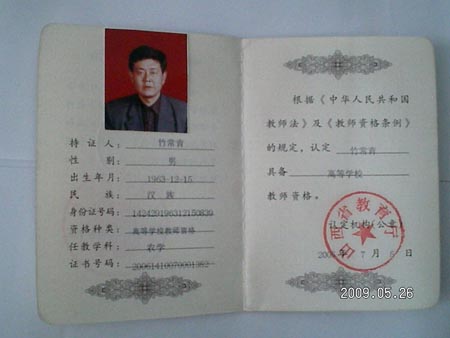 持证人： 竹常青
性别： 男
出生年月： 1963-12-15
民族： 汉族
身份证号码： 142429196312150839
资格种类： 高等学校教师资格
任教学科： 农学
证书号码： 20061410070001382
根据《中华人民共和国
教师法》及《教师资格条例》
的规定，认定 竹常青
具备 高等学校
教师资格。
山西省教育厅
认定机构（公章）
年 7 月 日
2009.05.26